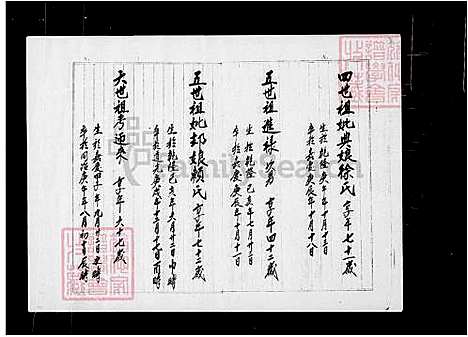 四世祖妣興娘徐氏 享年七十一歲
生於乾隆 年十月十三日
卒於嘉慶庚辰年十月十八日
五世祖進祿 次男 享年四十二歲
生於乾隆己亥年七月廿二日
卒於嘉慶庚辰年十月十一日
五世祖妣 娘賴氏 享年七十二歲
生於乾隆己亥年六月廿三日申時
卒於道光庚戌年十二月十四日酉時
六世祖考迎來 享年六十七歲
生於嘉慶甲子年九月廿二日 時
卒於同治庚午年八月初十日辰時